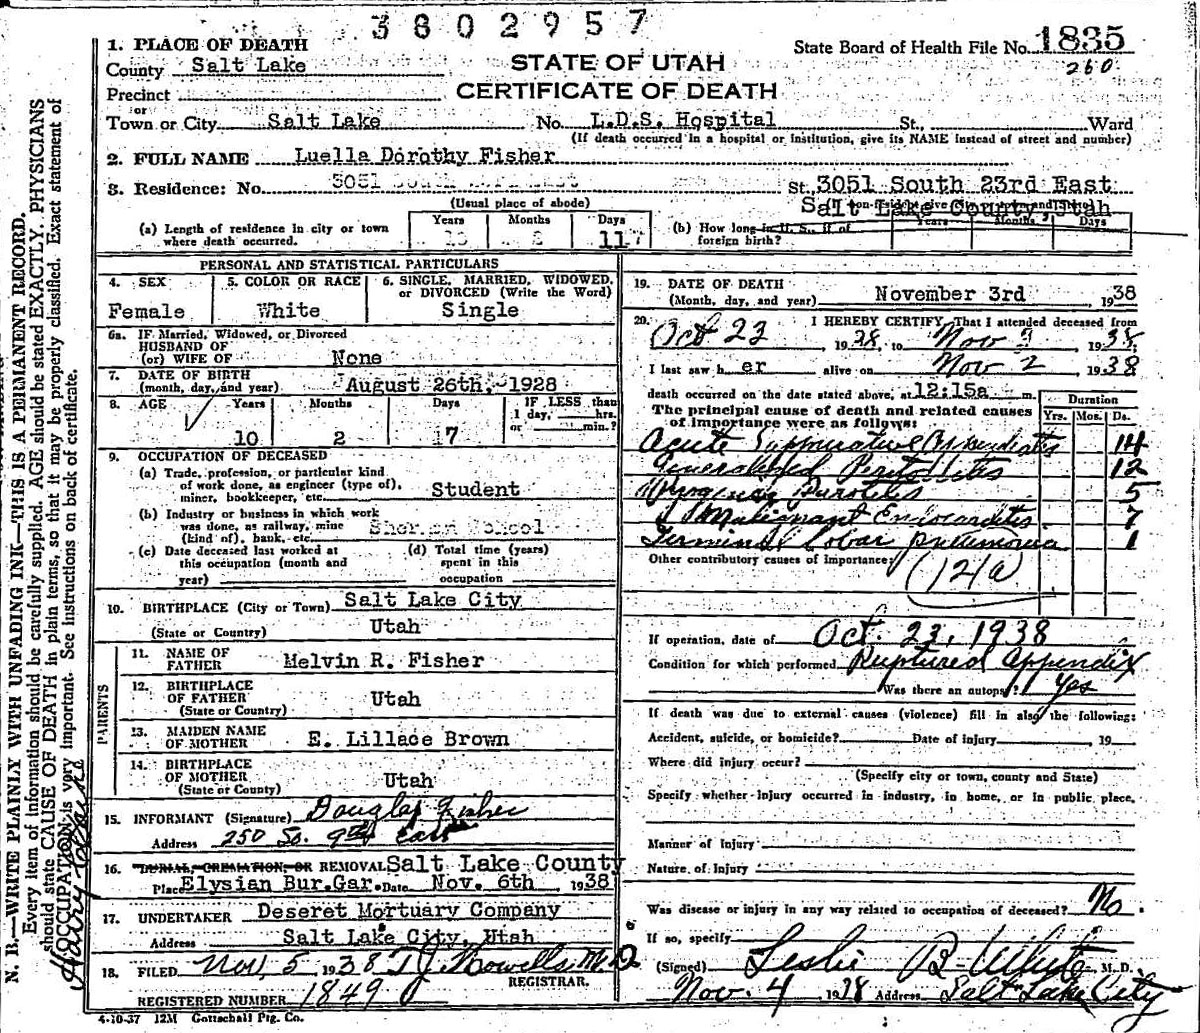 3802957
1. PLACE OF DEATH
County Salt Lake
STATE OF UTAH
CERTIFICATE OF DEATH
State Board of Health File No. 1835
260
Precinct
or
Town or City Salt Lake No. L.D.S. Hospital St., Ward
(If death occurred in a hospital or institution, give its NAME instead of street and number)
2. FULL NAME Luella Dorothy Fisher
3. Residence: No. 3051 South St. 3051 South 23rd East
Salt Lake County Utah
(Usual place of abode)
(a) Length of residence in city or town where death occurred. Years 10 Months 2 Days 11
(b) How long in U. S., if of foreign birth? Years Months Days
PERSONAL AND STATISTICAL PARTICULARS
4. SEX Female
5. COLOR OR RACE White
6. SINGLE, MARRIED, WIDOWED, or DIVORCED (Write the Word) Single
6a. IF Married, Widowed, or Divorced
HUSBAND OF
(or) WIFE OF None
7. DATE OF BIRTH
(month, day, and year) August 26th, 1928
8. AGE Years 10 Months 2 Days 7 IF LESS than 1 day, hrs. or min.?
9. OCCUPATION OF DECEASED
(a) Trade, profession, or particular kind
of work done, as engineer (type of),
miner, bookkeeper, etc. Student
(b) Industry or business in which work
was done, as railway, mine
(kind of), bank, etc. School
(c) Date deceased last worked at
this occupation (month and
year)
(d) Total time (years)
spent in this
occupation
10. BIRTHPLACE (City or Town) Salt Lake City
(State or Country) Utah
PARENTS
11. NAME OF
FATHER Melvin R. Fisher
12. BIRTHPLACE
OF FATHER Utah
(State or Country)
13. MAIDEN NAME
OF MOTHER E. Lillace Brown
14. BIRTHPLACE
OF MOTHER Utah
(State or County)
15. INFORMANT (Signature) Douglas Fisher
Address 250 So. 9th East
16. BURIAL, CREMATION, OR REMOVAL Salt Lake County
Place Elysian Bur.Gar. Date Nov. 6th 1938
17. UNDERTAKER Deseret Mortuary Company
Address Salt Lake City, Utah
18. FILED Nov. 5 1938 T J Howells M.D
REGISTRAR.
REGISTERED NUMBER 1849
4-10-37 12M Gottschall Ptg. Co.
19. DATE OF DEATH
(Month, day, and year) November 3rd 1938
20. I HEREBY CERTIFY, That I attended deceased from
Oct 23 1938, to Nov 3, 1938,
I last saw her alive on Nov 2, 1938
death occurred on the date stated above, at 12:15a m.
The principal cause of death and related causes
of importance were as follows:
Duration
Yrs. Mos. Ds.
Acute Suppurative Appendicitis 14
Generalized Peritonitis 12
Parotitis 5
Malignant Endocarditis 7
Terminal Lobar pneumonia 1
Other contributory causes of importance:
(121a)
If operation, date of Oct. 23, 1938
Condition for which performed Ruptured Appendix
Was there an autopsy? Yes
If death was due to external causes (violence) fill in also the following:
Accident, suicide, or homicide? Date of injury 19
Where did injury occur?
(Specify city or town, county and State)
Specify whether injury occurred in industry, in home, or in public place,
Manner of Injury
Nature of Injury
Was disease or injury in any way related to occupation of deceased? No.
If so, specify
(Signed) Leslie B. White M. D.
Nov. 4 1938 Address Salt Lake City
N. B.—WRITE PLAINLY WITH UNFADING INK—THIS IS A PERMANENT RECORD.
Every item of information should be carefully supplied. AGE should be stated EXACTLY. PHYSICIANS
should state CAUSE OF DEATH in plain terms, so that it may be properly classified. Exact statement of
OCCUPATION is very important. See instructions on back of certificate.